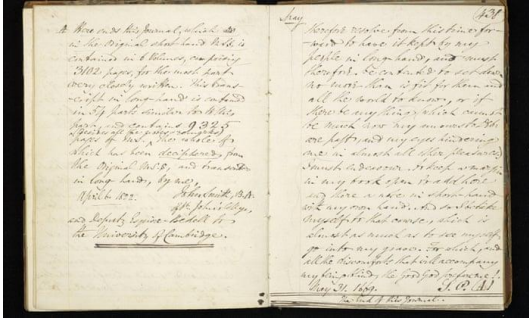 Here ends this Journal, which
in the original short hand M.S. is
contained in 6 Volumes, comprising
3102 pages, for the most part
very closely written. This trans-
cript in long hand is contained
in 54 parts similar to this
and contains 9325
pages of M.S., the whole of
which has been decyphered, from
the original M.S.S, and transcribed
in long hand, by me,
April 1822. John Smith,
of St. John's
and Deputy Esquire-Bedell to
the University of Cambridge.
May
therefore resolve, from this time for-
ward to have it kept by my
people in long hand, and must
therefore be contented to set down
no more than is fit for them and
all the world to know, or if
there be any thing, which cannot
be much now my amours to Deb
are past, and my eyes hindering
me in almost all other pleasures
I must endeavour to keep a margin
in my book open to add here
and there a note in short hand
with my own hand. And so I betake
myself to that course, which is
almost as much as to see myself
go into my grave. For which, and
all the discomforts that will accompany
my being blind, the Good God prepare me!
May 31. 1669. S. P.
The End of this Journal.